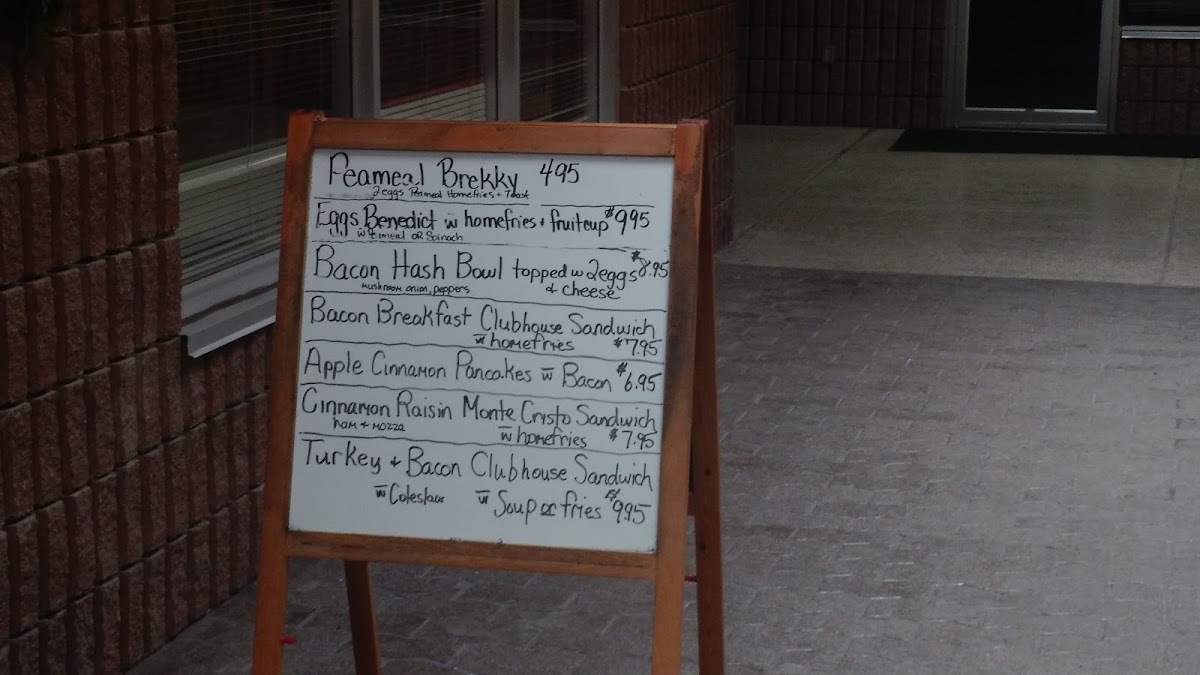 Peameal Brekky 495
2 eggs Peameal Homefries + Toast
Eggs Benedict w homefries + fruitcup $995
w Peameal OR Spinach
Bacon Hash Bowl topped w 2eggs $8.95
mushroom onion, peppers & cheese
Bacon Breakfast Clubhouse Sandwich
w homefries $7.95
Apple Cinnamon Pancakes w Bacon $6.95
Cinnamon Raisin Monte Cristo Sandwich
ham + mozza w homefries $7.95
Turkey + Bacon Clubhouse Sandwich
w Coleslaw w Soup or fries $995